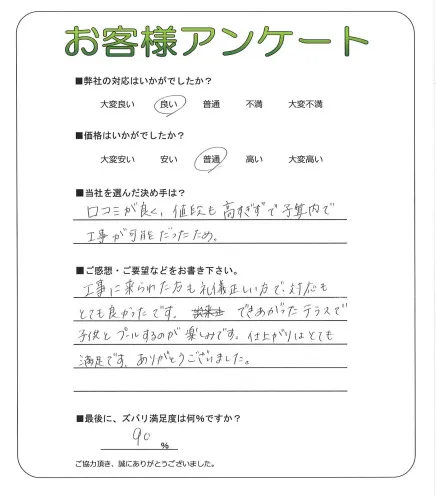 お客様アンケート
■弊社の対応はいかがでしたか?
大変良い 良い 普通 不満 大変不満
■価格はいかがでしたか?
大変安い 安い 普通 高い 大変高い
■当社を選んだ決め手は?
口コミが良く、値段も高すぎずで予算内で
工事が可能だったため。
■ご感想・ご要望などをお書き下さい。
工事に来られた方も礼儀正しい方で、対応も
とても良かったです。 できあがったテラスで
子供とプールするのが楽しみです。仕上がりはとても
満足です。ありがとうございました。
■最後に、ズバリ満足度は何%ですか?
90 %
ご協力頂き、誠にありがとうございました。